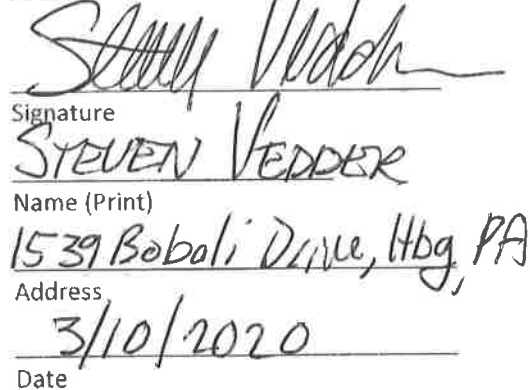 Steven Vedder
Signature
STEVEN VEDDER
Name (Print)
1539 Bobali Drive, Hbg, PA
Address
3/10/2020
Date